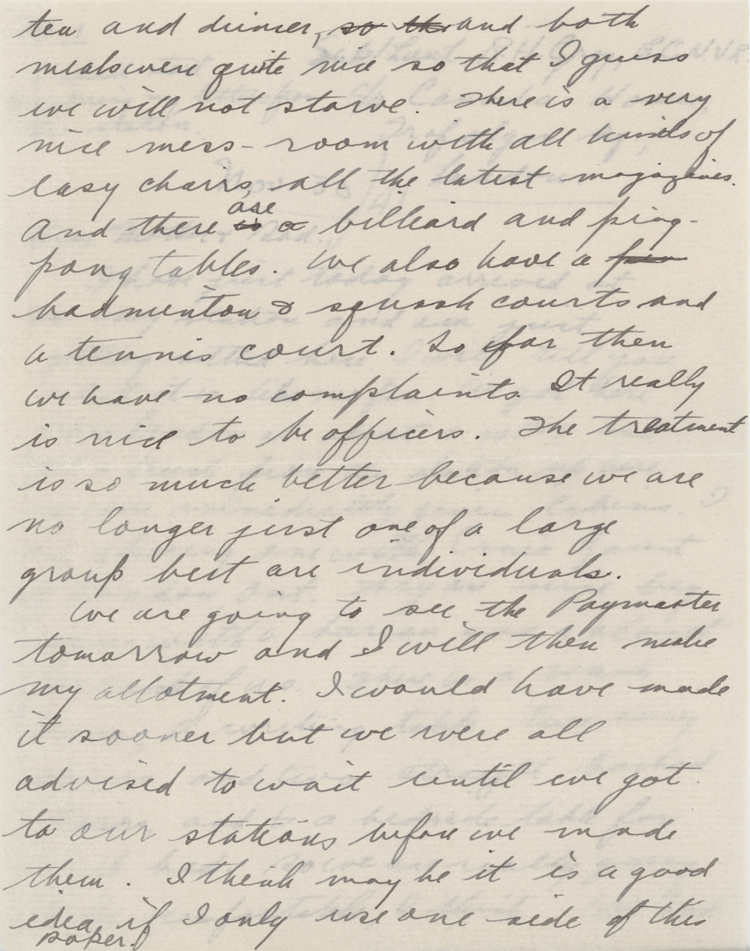 tea and dinner, so th and both
meals were quite nice so that I guess
we will not starve. There is a very
nice mess-room with all kinds of
easy chairs, all the latest magazines.
And there are is a billiard and ping-
pong tables. We also have a few
badmenton & squash courts and
a tennis court. So far then
we have no complaints. It really
is nice to be officers. The treatment
is so much better because we are
no longer just one of a large
group but are individuals.
We are going to see the Paymaster
tomorrow and I will then make
my allotment. I would have made
it sooner but we were all
advised to wait until we got
to our stations before we made
them. I think maybe it is a good
idea if I only use one side of this
paper!